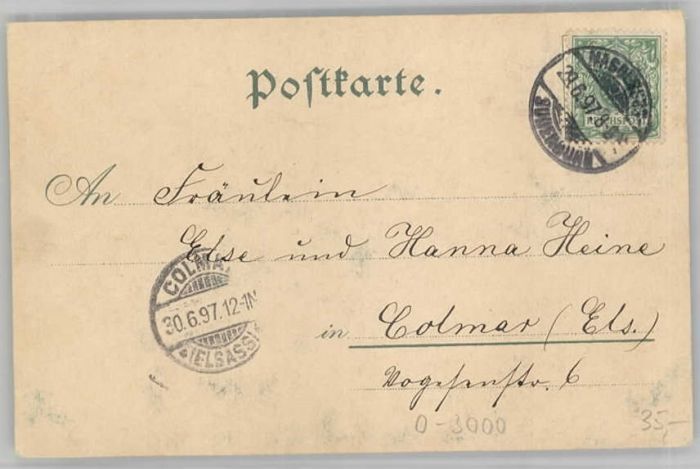 Postkarte.
29.6.97.
REICHSPOST
SUDENBURG
An Fräulein
Else und Hanna Heine
COLMAR
30.6.97.12-1N
(ELSASS)
in Colmar (Els.)
Vogesenstr. 6
0-3000
35,-